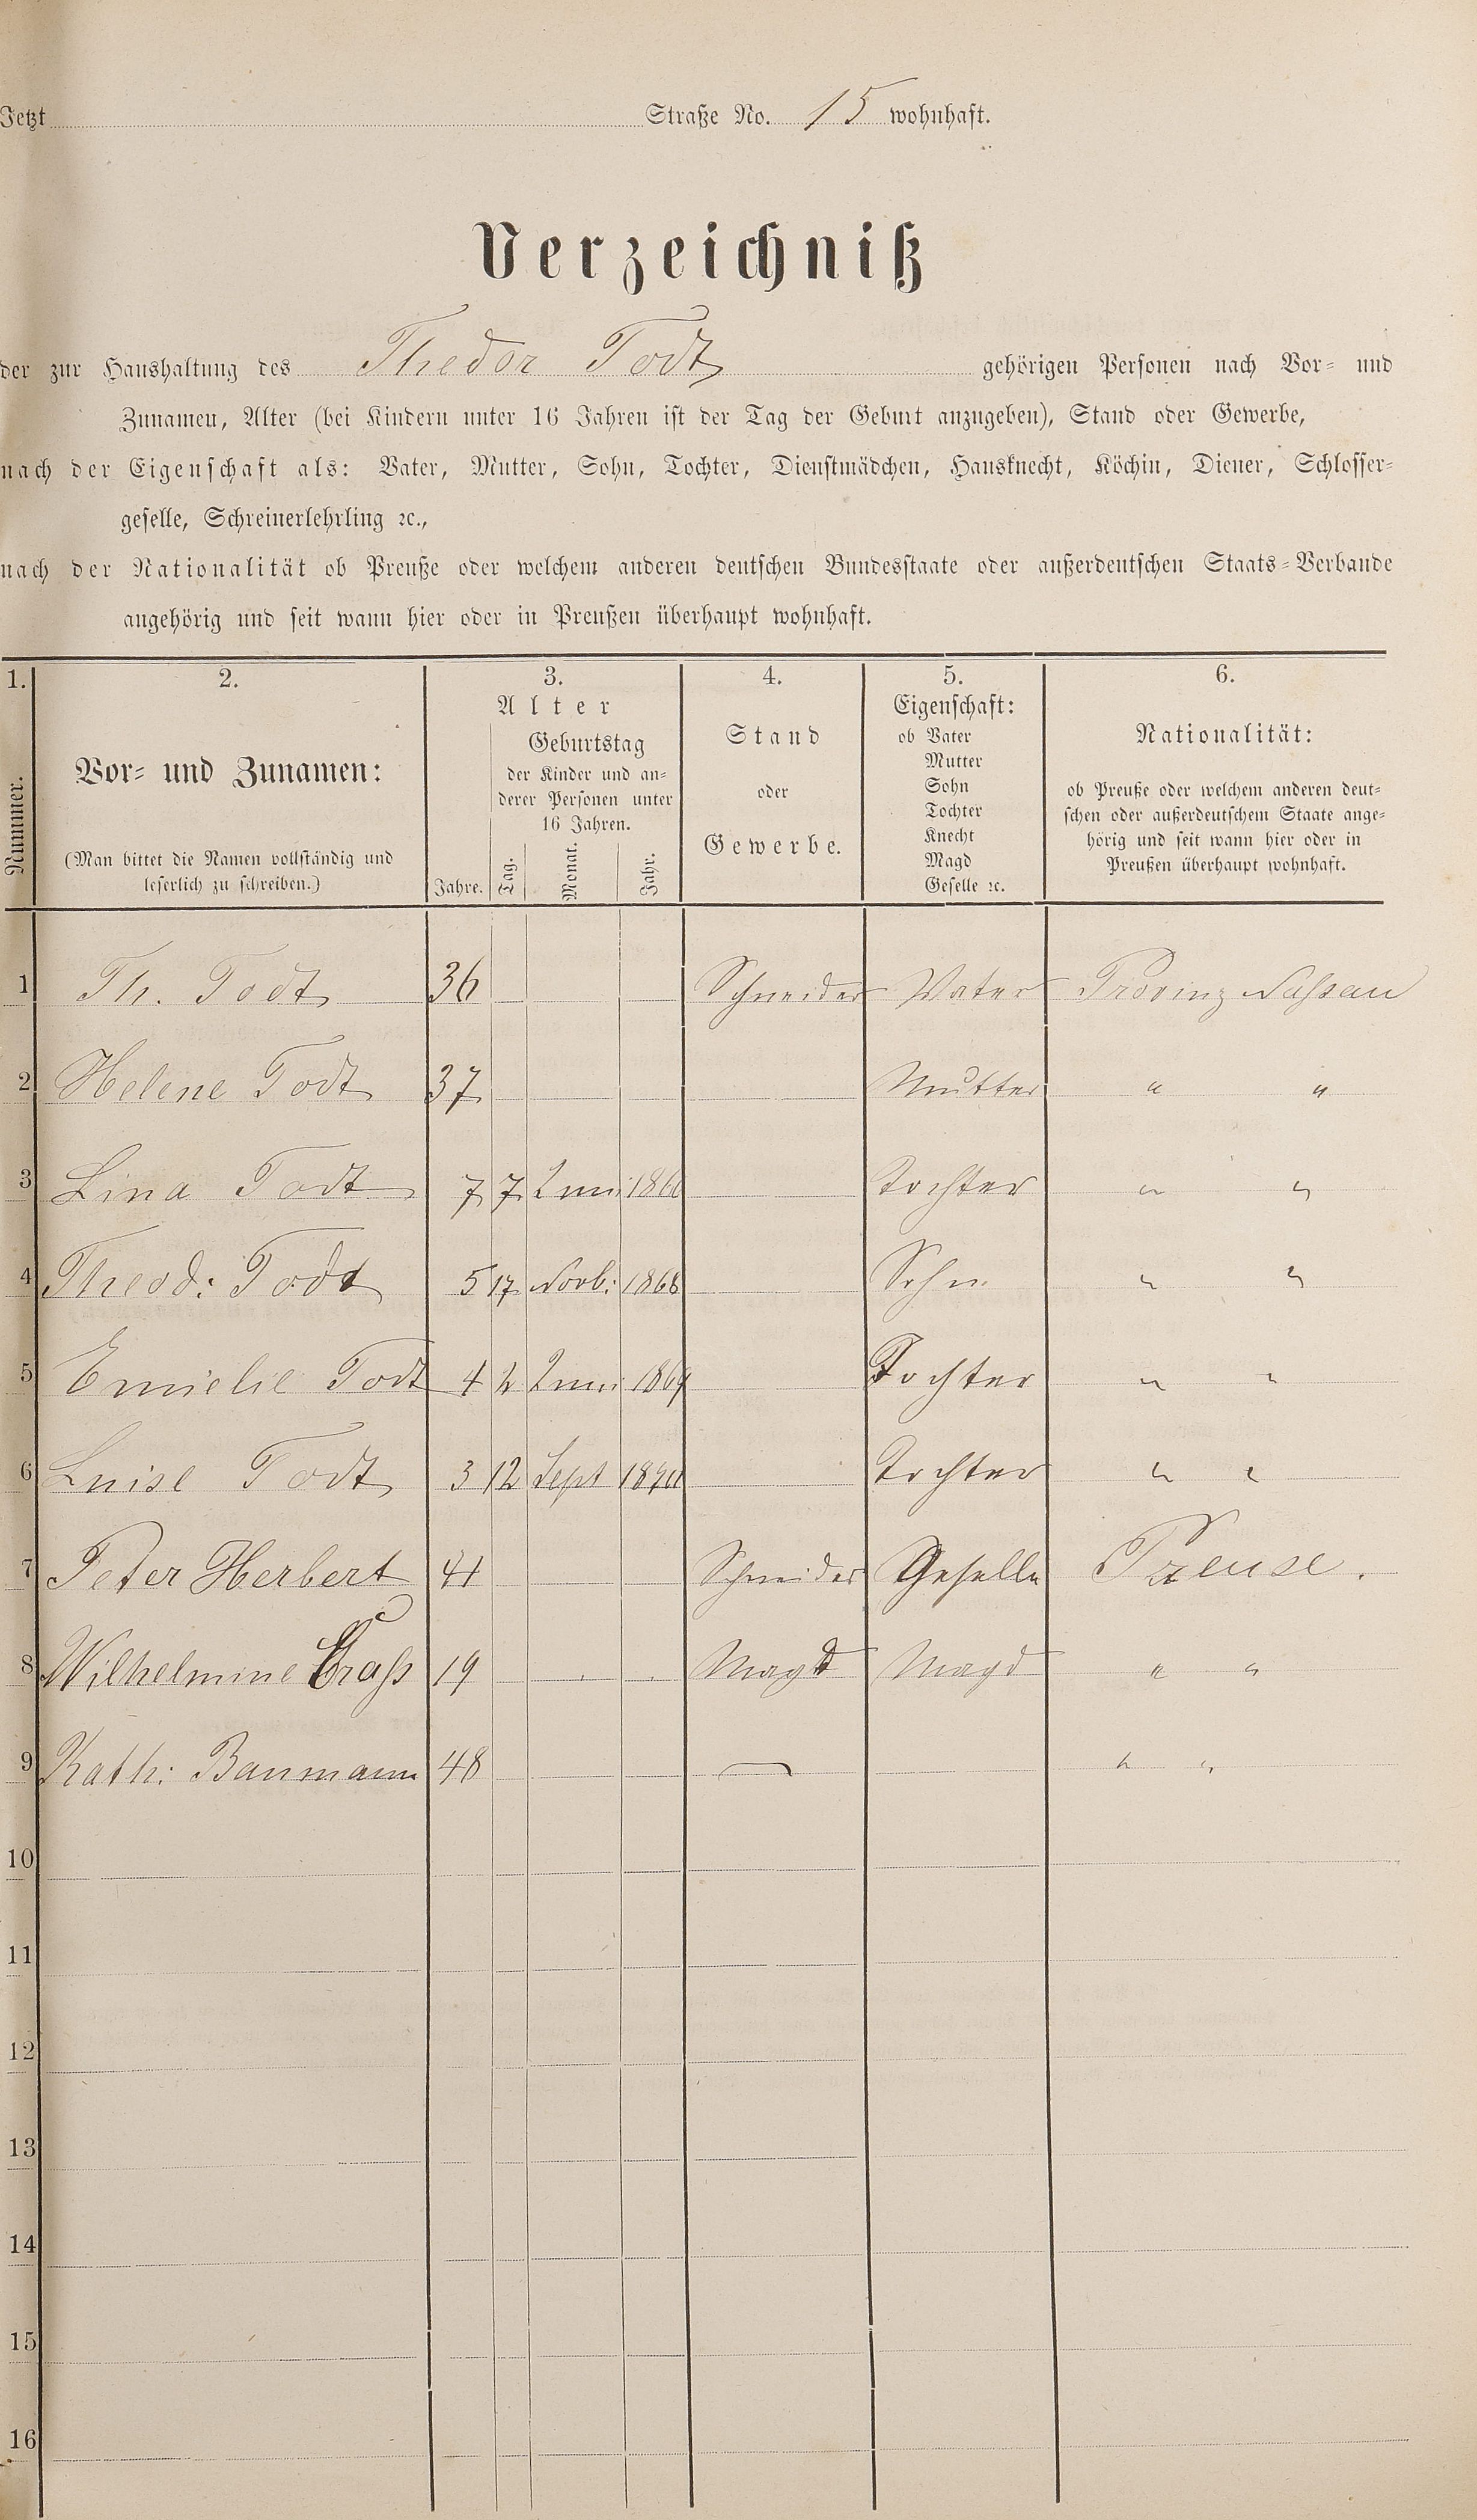 Jetzt Straße No. 15 wohnhaft.
Verzeichniß
der zur Haushaltung des Thedor Todt gehörigen Personen nach Vor- und
Zunamen, Alter (bei Kindern unter 16 Jahren ist der Tag der Geburt anzugeben), Stand oder Gewerbe,
nach der Eigenschaft als: Vater, Mutter, Sohn, Tochter, Dienstmädchen, Hausknecht, Köchin, Diener, Schlosser-
geselle, Schreinerlehrling ꝛc.,
nach der Nationalität ob Preuße oder welchem anderen deutschen Bundesstaate oder außerdeutschen Staats-Verbande
angehörig und seit wann hier oder in Preußen überhaupt wohnhaft.
1. 2. 3. 4. 5. 6.
Nummer.
Vor- und Zunamen:
(Man bittet die Namen vollständig und
leserlich zu schreiben.)
Alter
Jahre.
Geburtstag
der Kinder und an-
derer Personen unter
16 Jahren.
Tag. Monat. Jahr.
Stand
oder
Gewerbe.
Eigenschaft:
ob Vater
Mutter
Sohn
Tochter
Knecht
Magd
Geselle ꝛc.
Nationalität:
ob Preuße oder welchem anderen deut-
schen oder außerdeutschem Staate ange-
hörig und seit wann hier oder in
Preußen überhaupt wohnhaft.
1 Th. Todt 36 Schneider Vater Provinz Nassau
2 Helene Todt 37 Mutter " "
3 Lina Todt 7 7 Juni Tochter " "
4 Theod: Todt 5 17 Novb: 1868 Sohn " "
5 Emielie Todt 4 2 Juni 1869 Tochter " "
6 Luise Todt 3 12 Sept 1870 Tochter " "
7 Peter Herbert 41 Schneider Geselle Preuse.
8 Wilhelmine Crass 19 Magd Magd " "
9 Kath: Baumann 48 — " "
10
11
12
13
14
15
16